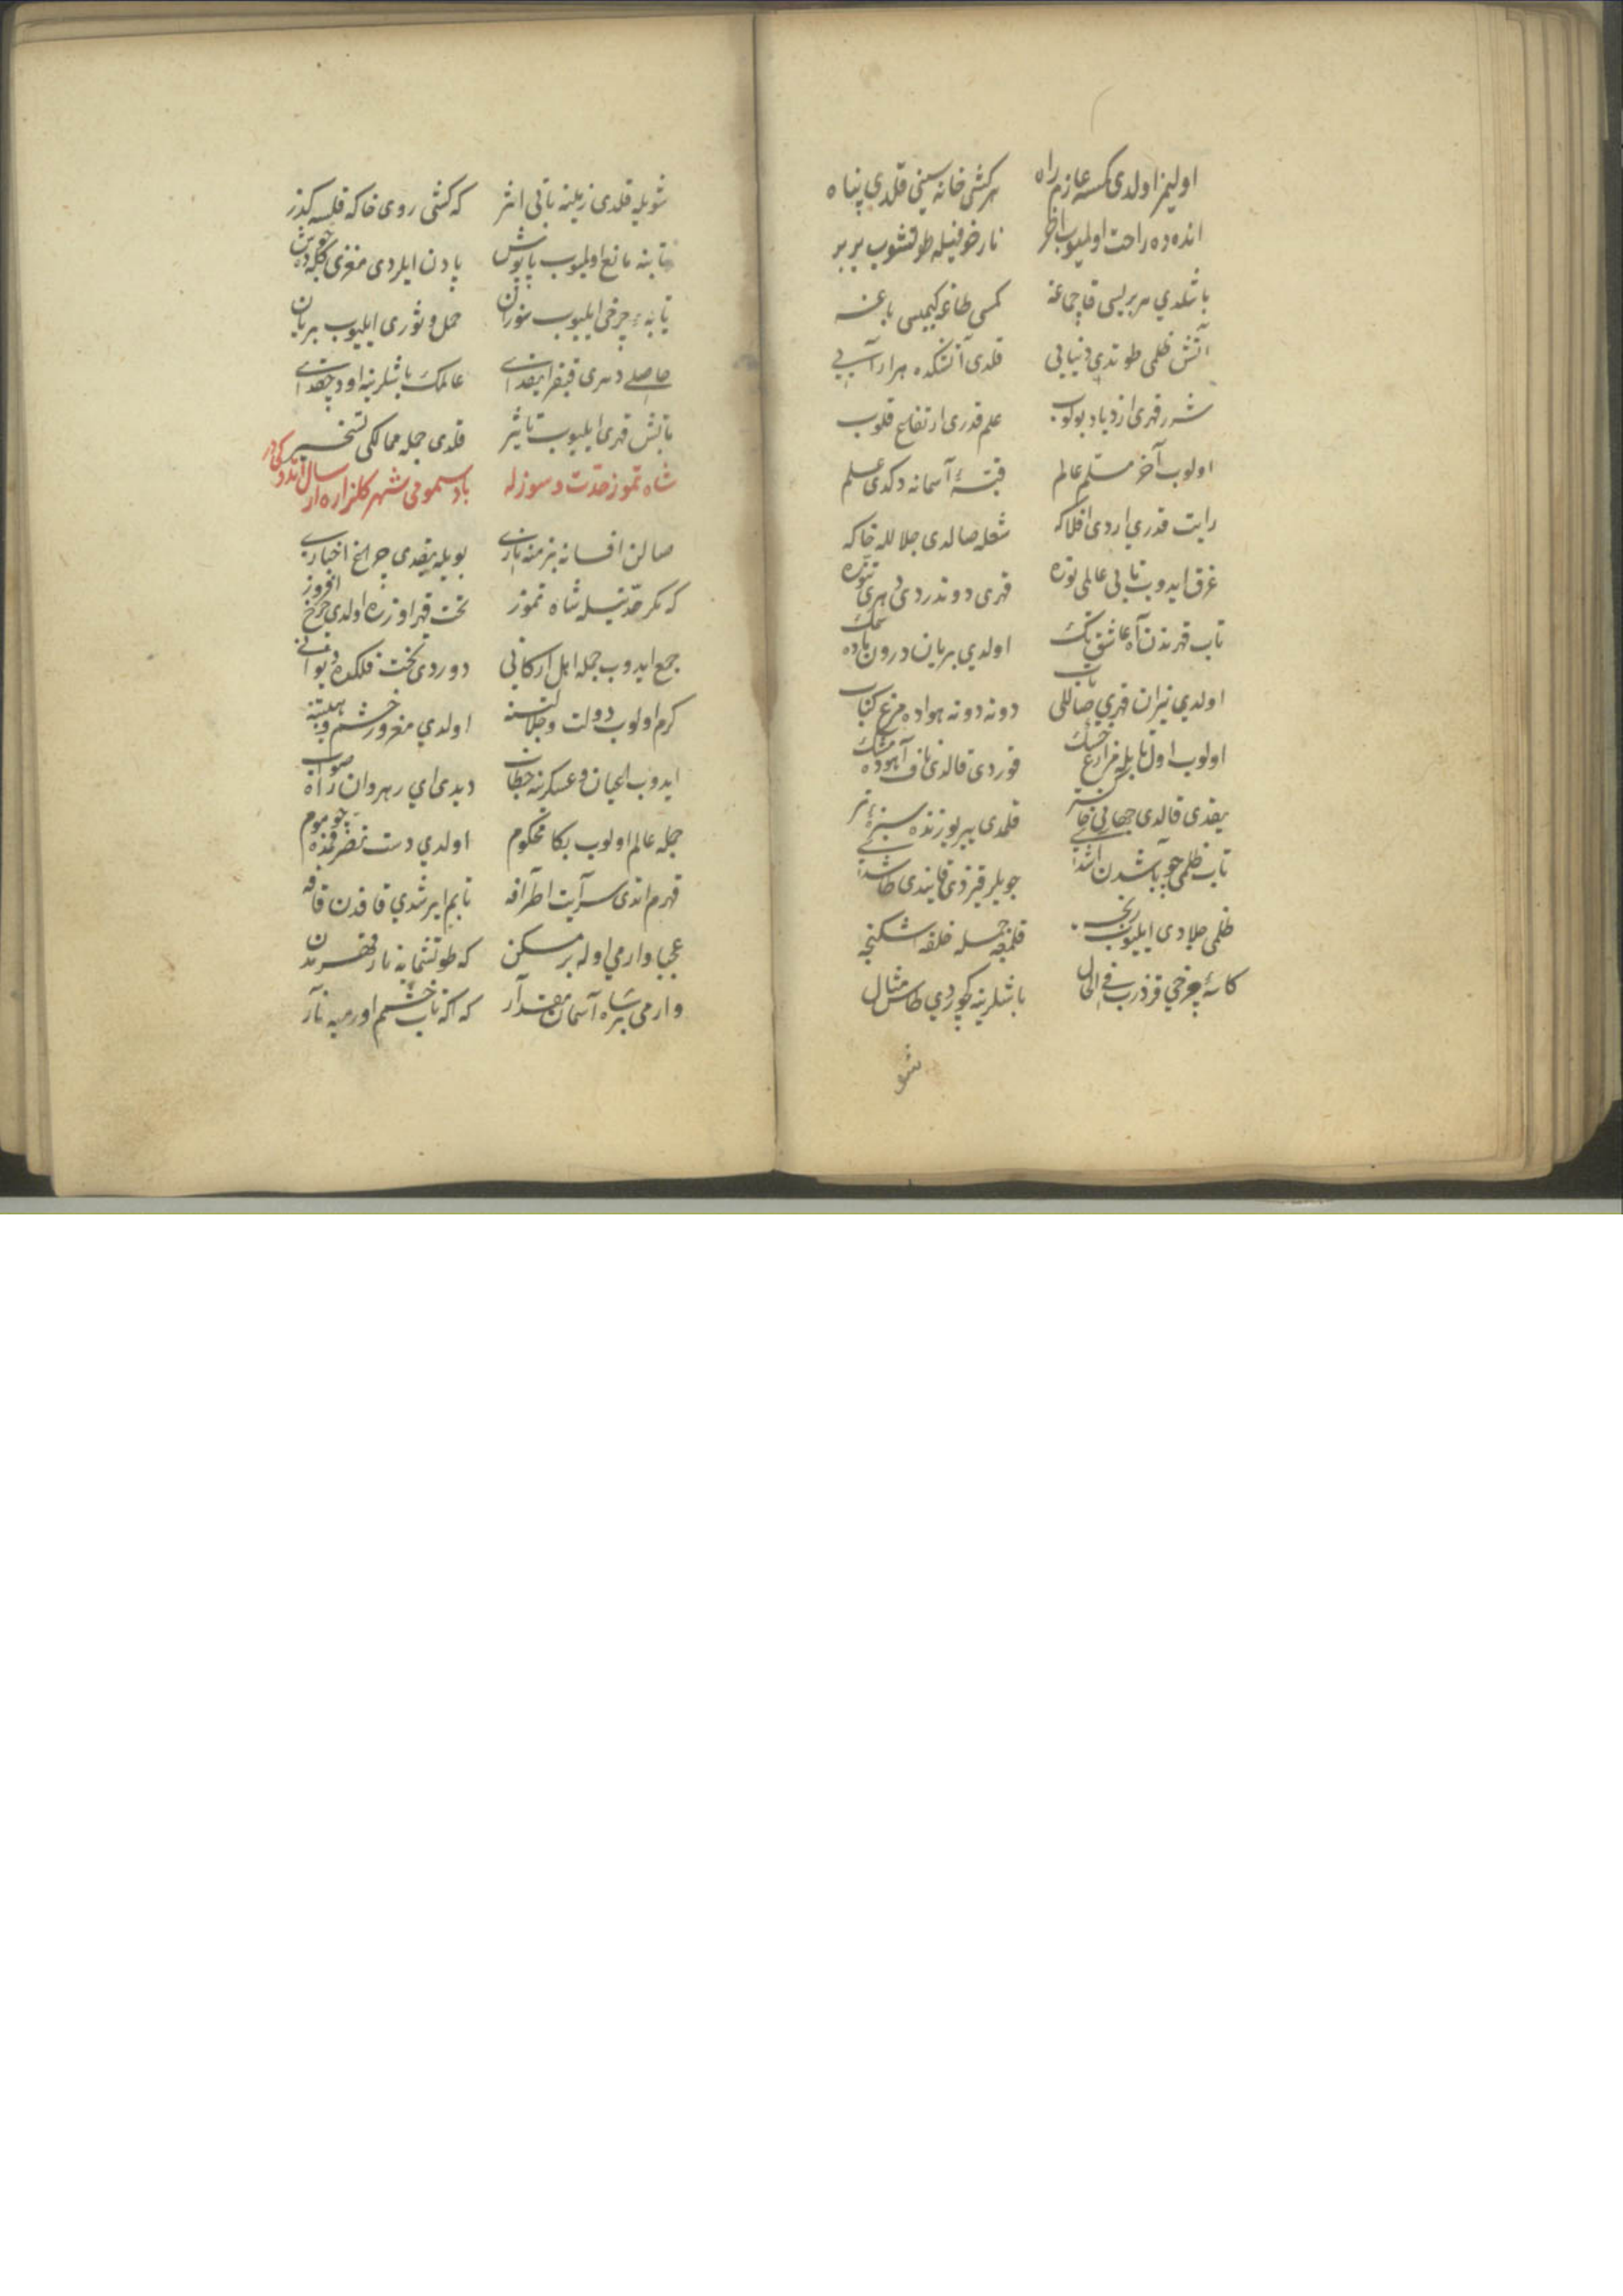 اولیمز اولدی کمسه عازم راه هر کشی خانه سینی قلدی پناه
انده ده راحت اولمیوب اخر نار خوفیله طوتشوب یر یر
باشلدی هر بریسی قاچماغه کمسی طاغه کیمیسی باغه
آتش ظلمی طوتدی دنیایی قلدی آتشکده هر آرایی
شرر قهری ازدیاد بولوب علم قدری ارتفاع قلوب
اولوب آخر مسلم عالم قبۀ آسمانه دکدی علم
رایت قدری اردی افلاکه شعله صالدی جلالله خاکه
غرق ایدوب تابی عالمی نوره قهری دوندردی دهری تنوره
تاب قهرندن آه عاشق تک اولدی بریان درون باده سمک
اولدی نیران قهری صاللی تاب دونه دونه هواده مرغ کباب
اولوب اول تابله مزارع خشک قوردی قالدی ناف آهوده مشک
یقدی قالدی جهانی خاکستر قلمدی یر یوزنده سبزۀ تر
تاب ظلمی چو باشدن اشدی جویلر قیزدی قایندی طاشدی
ظلمی جلادی ایلیوب رنجه قلمغه جمله خلقه اشکنجه
کاسۀ چرخی قزدرب فی الحال باشلرینه کچوردی طاس مثال
شو
شویله قلدی زمینه تابی اثر که کشی روی خاکه قلسه کذر
تابنه مانع اولمیوب پاپوش یادن ایلردی مغزی کله ده جوش
تابۀ چرخی ایلیوب سوزان حمل و ثوری ایلیوب بریان
حاصلی دهری قیقرا یقدی عالمک باشلرینه اود چقدی
تابش قهری ایلیوب تاثیر قلدی جمله ممالکی تسخیر
شاه تموز حدت دسوزله باد سمومی شهر کلزاره ارسال اتدوکیدر
صالن افسانه بزمنه ناری بویله یقدی چراغ اخباری
که مکر حدتیله شاه تموز تخت قهر اوزره اولدی چرخ افروز
جمع ایدوب جمله اهل ارکانی دوردی تخت فلکده دیوانی
کرم اولوب دولت و جلالتنه اولدی مغرور خشم و هیبتنه
ایدوب اعیان و عسکرنه خطاب دیدی ای رهروان راه صواب
جمله عالم اولوب بکا محکوم اولدی دست تصرفمده چو موم
قهرم اندی سرایت اطرافه تابم ایرشدی قافدن قافه
عجبا وارمی اوله بر مسکن که طوتشمایه نار قهرمدن
وارمی بر شاه آسمان مقدار که اکه تاب خشم اورمیه نار